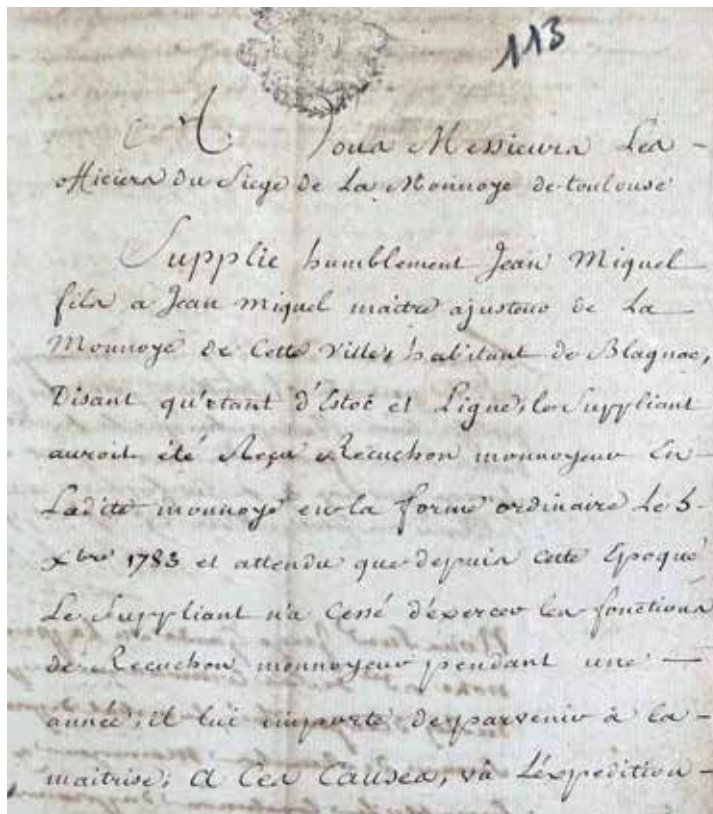 113
A Vous Messieurs Les -
officiers du Siege de La Monnoye de toulouse
Supplie humblement Jean Miquel
fils a Jean Miquel maitre ajusteur de La
Monnoye de Cette Ville, habitant de Blagnac,
Disant qu'etant d'Estoc et Ligne, le Suppliant
auroit été Reçu Recuchon monnoyeur En
Ladite monnoye en la forme ordinaire Le 5
xbre 1783 et attendu que depuis cette Epoque
Le Suppliant n'a Cessé d'exercer les fonctions
de Recuchon monnoyeur pendant une -
année, il lui importe de parvenir à la -
maitrise; a Ces Causes, vû L'expedition -